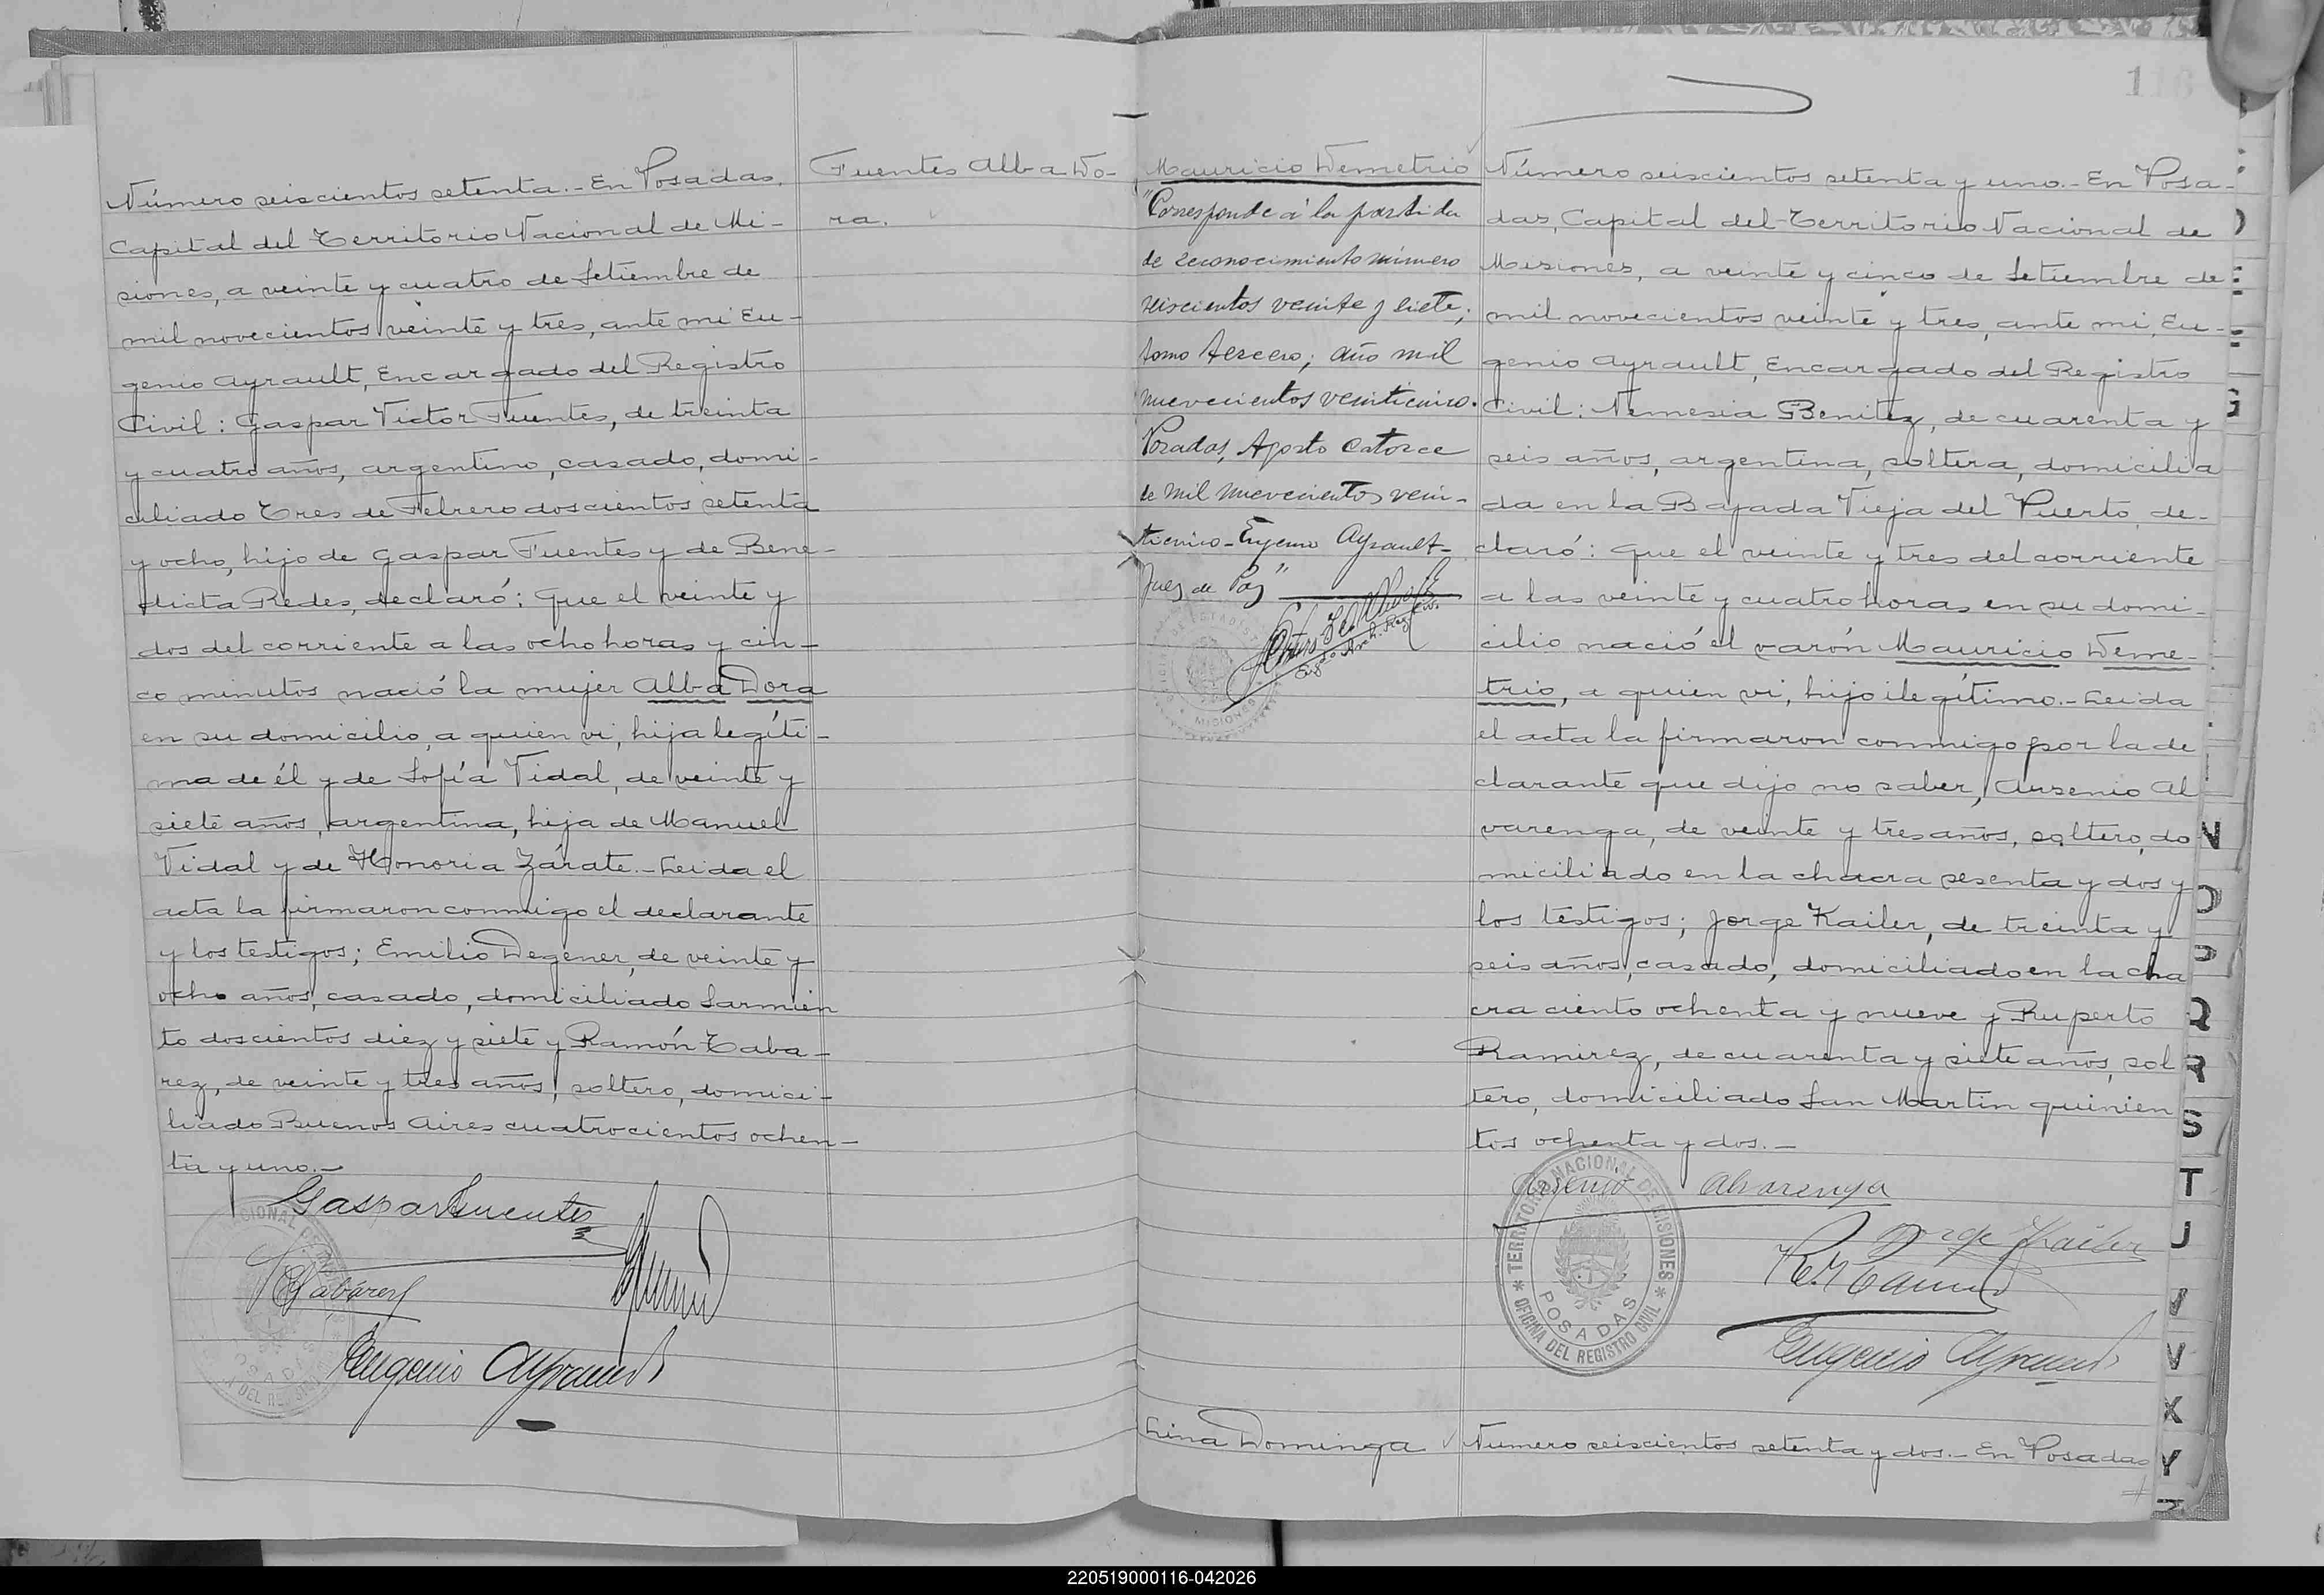 Número seiscientos setenta.- En Posadas,
Capital del Territorio Nacional de Mi-
siones, a veinte y cuatro de Setiembre de
mil novecientos veinte y tres, ante mi Eu-
genio Ayrault, Encargado del Registro
Civil: Gaspar Victor Fuentes, de treinta
y cuatro años, argentino, casado, domi-
ciliado Tres de Febrero doscientos setenta
y ocho, hijo de Gaspar Fuentes y de Bene-
dicta Redes, declaró: Que el veinte y
dos del corriente a las ocho horas y cin-
co minutos nació la mujer Alba Dora
en su domicilio, a quien vi, hija legíti-
ma de él y de Sofía Vidal, de veinte y
siete años, argentina, hija de Manuel
Vidal y de Honoria Zárate.- Leida el
acta la firmaron conmigo el declarante
y los testigos; Emilio Degener, de veinte y
ocho años, casado, domiciliado Sarmien
to doscientos diez y siete y Ramón Taba-
rez, de veinte y tres años, soltero, domici-
liado Buenos Aires cuatrocientos ochen-
ta y uno.-
Gaspar Fuentes
Tabárez
Eugenio Ayrault
Fuentes Alba Do-
ra.
Mauricio Demetrio
"Corresponde á la partida
de reconocimiento número
seiscientos veinte y siete;
tomo tercero; año mil
nuevecientos veinticinco.
Posadas, Agosto catorce
de mil nuevecientos vein-
ticinco - Eugenio Ayrault -
Juez de Paz"
Engdo Arch. Reg. Civ.
MISIONES
116
Número seiscientos setenta y uno.- En Posa-
das, Capital del Territorio Nacional de
Misiones, a veinte y cinco de Setiembre de
mil novecientos veinte y tres, ante mi, Eu-
genio Ayrault, Encargado del Registro
Civil: Nemesia Benitez, de cuarenta y
seis años, argentina, soltera, domicilia
da en la Bajada Vieja del Puerto, de-
claró: Que el veinte y tres del corriente
a las veinte y cuatro horas en su domi-
cilio nació el varón Mauricio Deme-
trio, a quien vi, hijo ilegítimo.- Leida
el acta la firmaron conmigo por la de
clarante que dijo no saber, Arsenio Al
varenga, de veinte y tres años, soltero, do
miciliado en la chacra sesenta y dos y
los testigos; Jorge Kailer, de treinta y
seis años, casado, domiciliado en la cha
cra ciento ochenta y nueve y Ruperto
Ramirez, de cuarenta y siete años, sol
tero, domiciliado San Martin quinien
tos ochenta y dos.-
Arsenio Alvarenga
Jorge Kailer
Eugenio Ayrault
TERRITORIO NACIONAL DE MISIONES
POSADAS
OFICINA DEL REGISTRO CIVIL
Lina Dominga
Número seiscientos setenta y dos.- En Posadas
N
O
P
Q
R
S
T
J
V
X
Y
Z
220519000116-042026